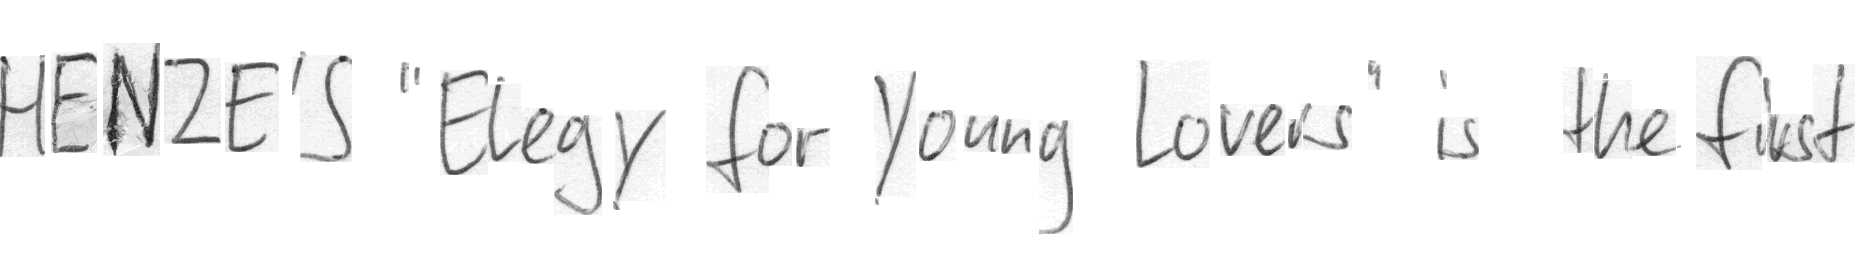 HENZE'S "Elegy for Young Lovers" is the first